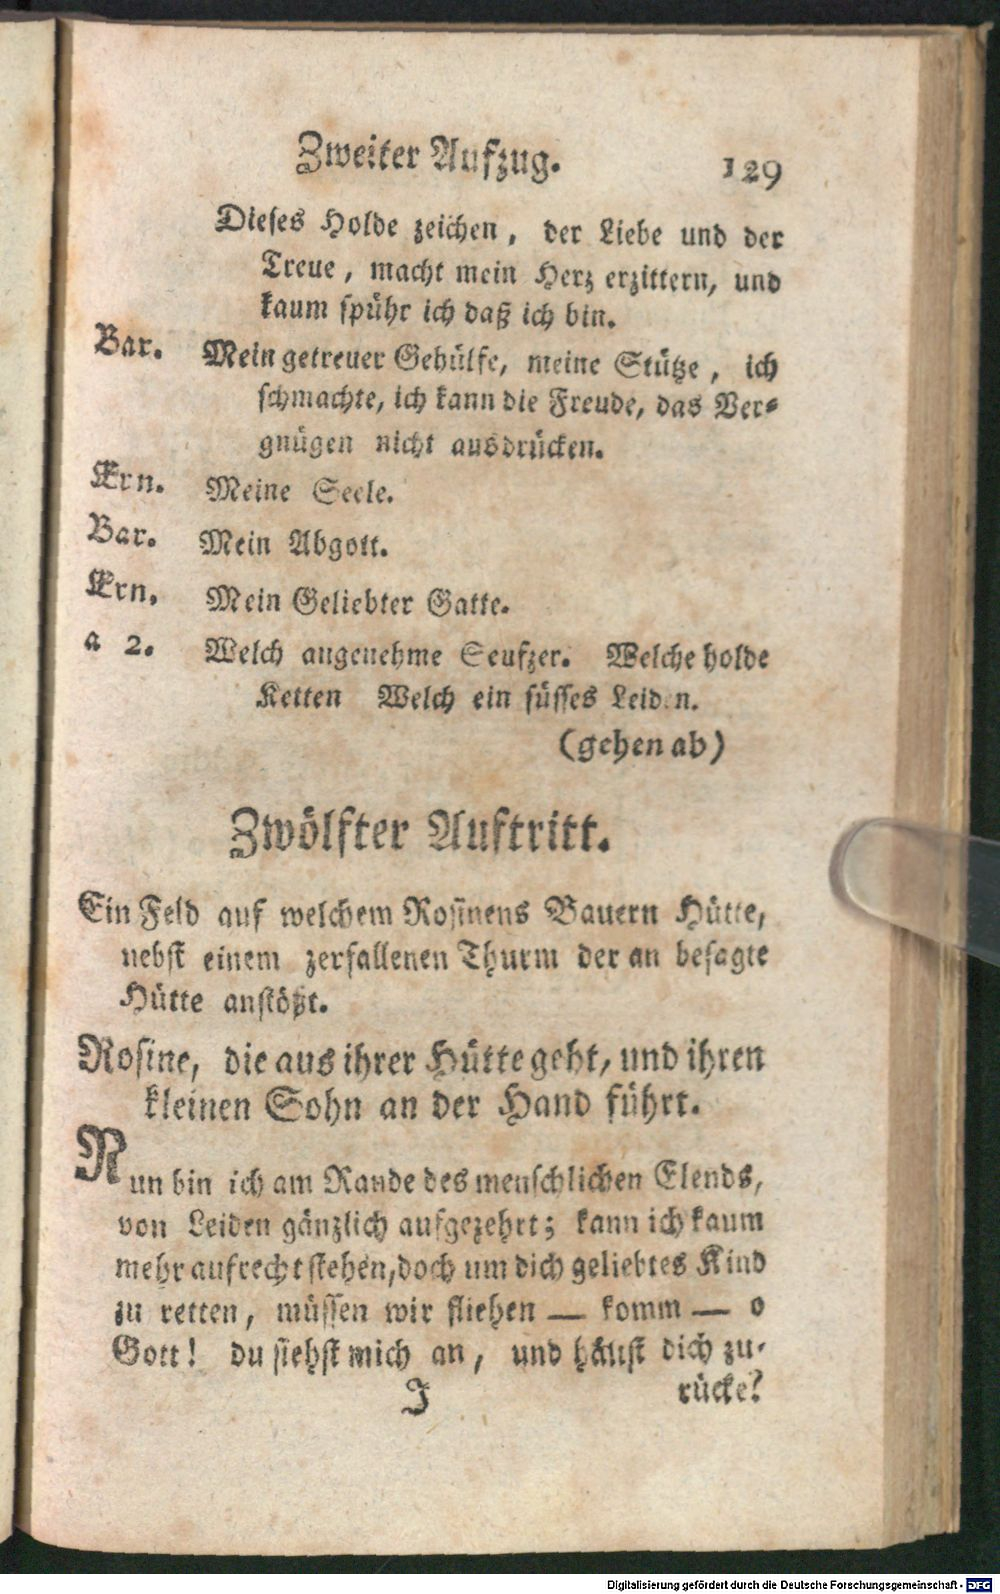 Zweiter Aufzug. 129
Dieses Holde zeichen, der Liebe und der
Treue, macht mein Herz erzittern, und
kaum spühr ich daß ich bin.
Bar. Mein getreuer Gehülfe, meine Stütze, ich
schmachte, ich kann die Freude, das Ver-
gnügen nicht ausdrücken.
Ern. Meine Seele.
Bar. Mein Abgott.
Ern. Mein Geliebter Gatte.
a 2. Welch angenehme Seufzer. Welche holde
Ketten Welch ein süsses Leid n.
(gehen ab)
Zwölfter Auftritt.
Ein Feld auf welchem Rosinens Bauern Hütte,
nebst einem zerfallenen Thurm der an besagte
Hütte anstößt.
Rosine, die aus ihrer Hütte geht, und ihren
kleinen Sohn an der Hand führt.
Nun bin ich am Rande des menschlichen Elends,
von Leiden gänzlich aufgezehrt; kann ich kaum
mehr aufrecht stehen, doch um dich geliebtes Kind
zu retten, müssen wir fliehen — komm — o
Gott! du siehst mich an, und hältst dich zu-
J rücke?
Digitalisierung gefördert durch die Deutsche Forschungsgemeinschaft - DFG